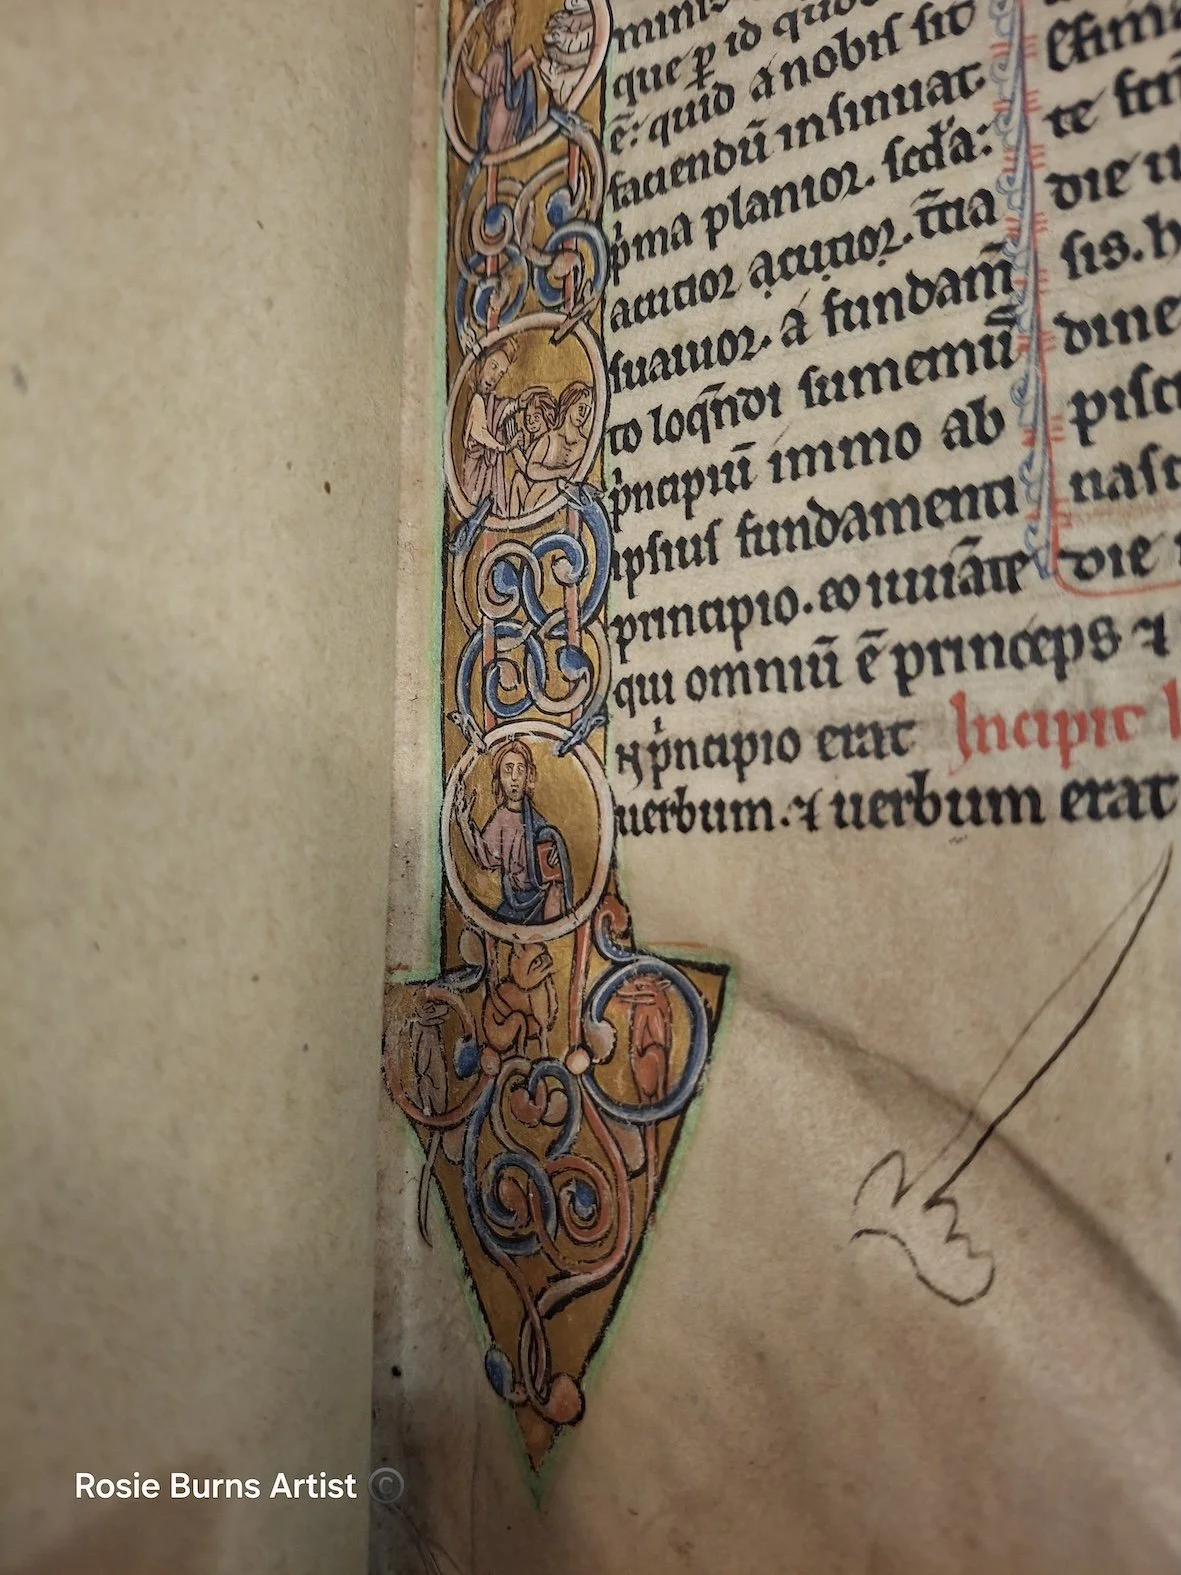 que ꝑ id quod
ē: quid a nobis sit
faciendū insinuat
p̍ma planior. scd̄a:
acutior acutior. t̄cia
suauior. a fundam̄
to loq̄ndi sumemū
p̍ncipiū immo ab
ipsius fundamenti
principio. eo iuuāte
qui omniū ē princeps ⁊
p̍ncipio erat
uerbum. ⁊ uerbum erat
te
die
sis. h
dine
pisci
nasc
die
Incipit
Rosie Burns Artist ©